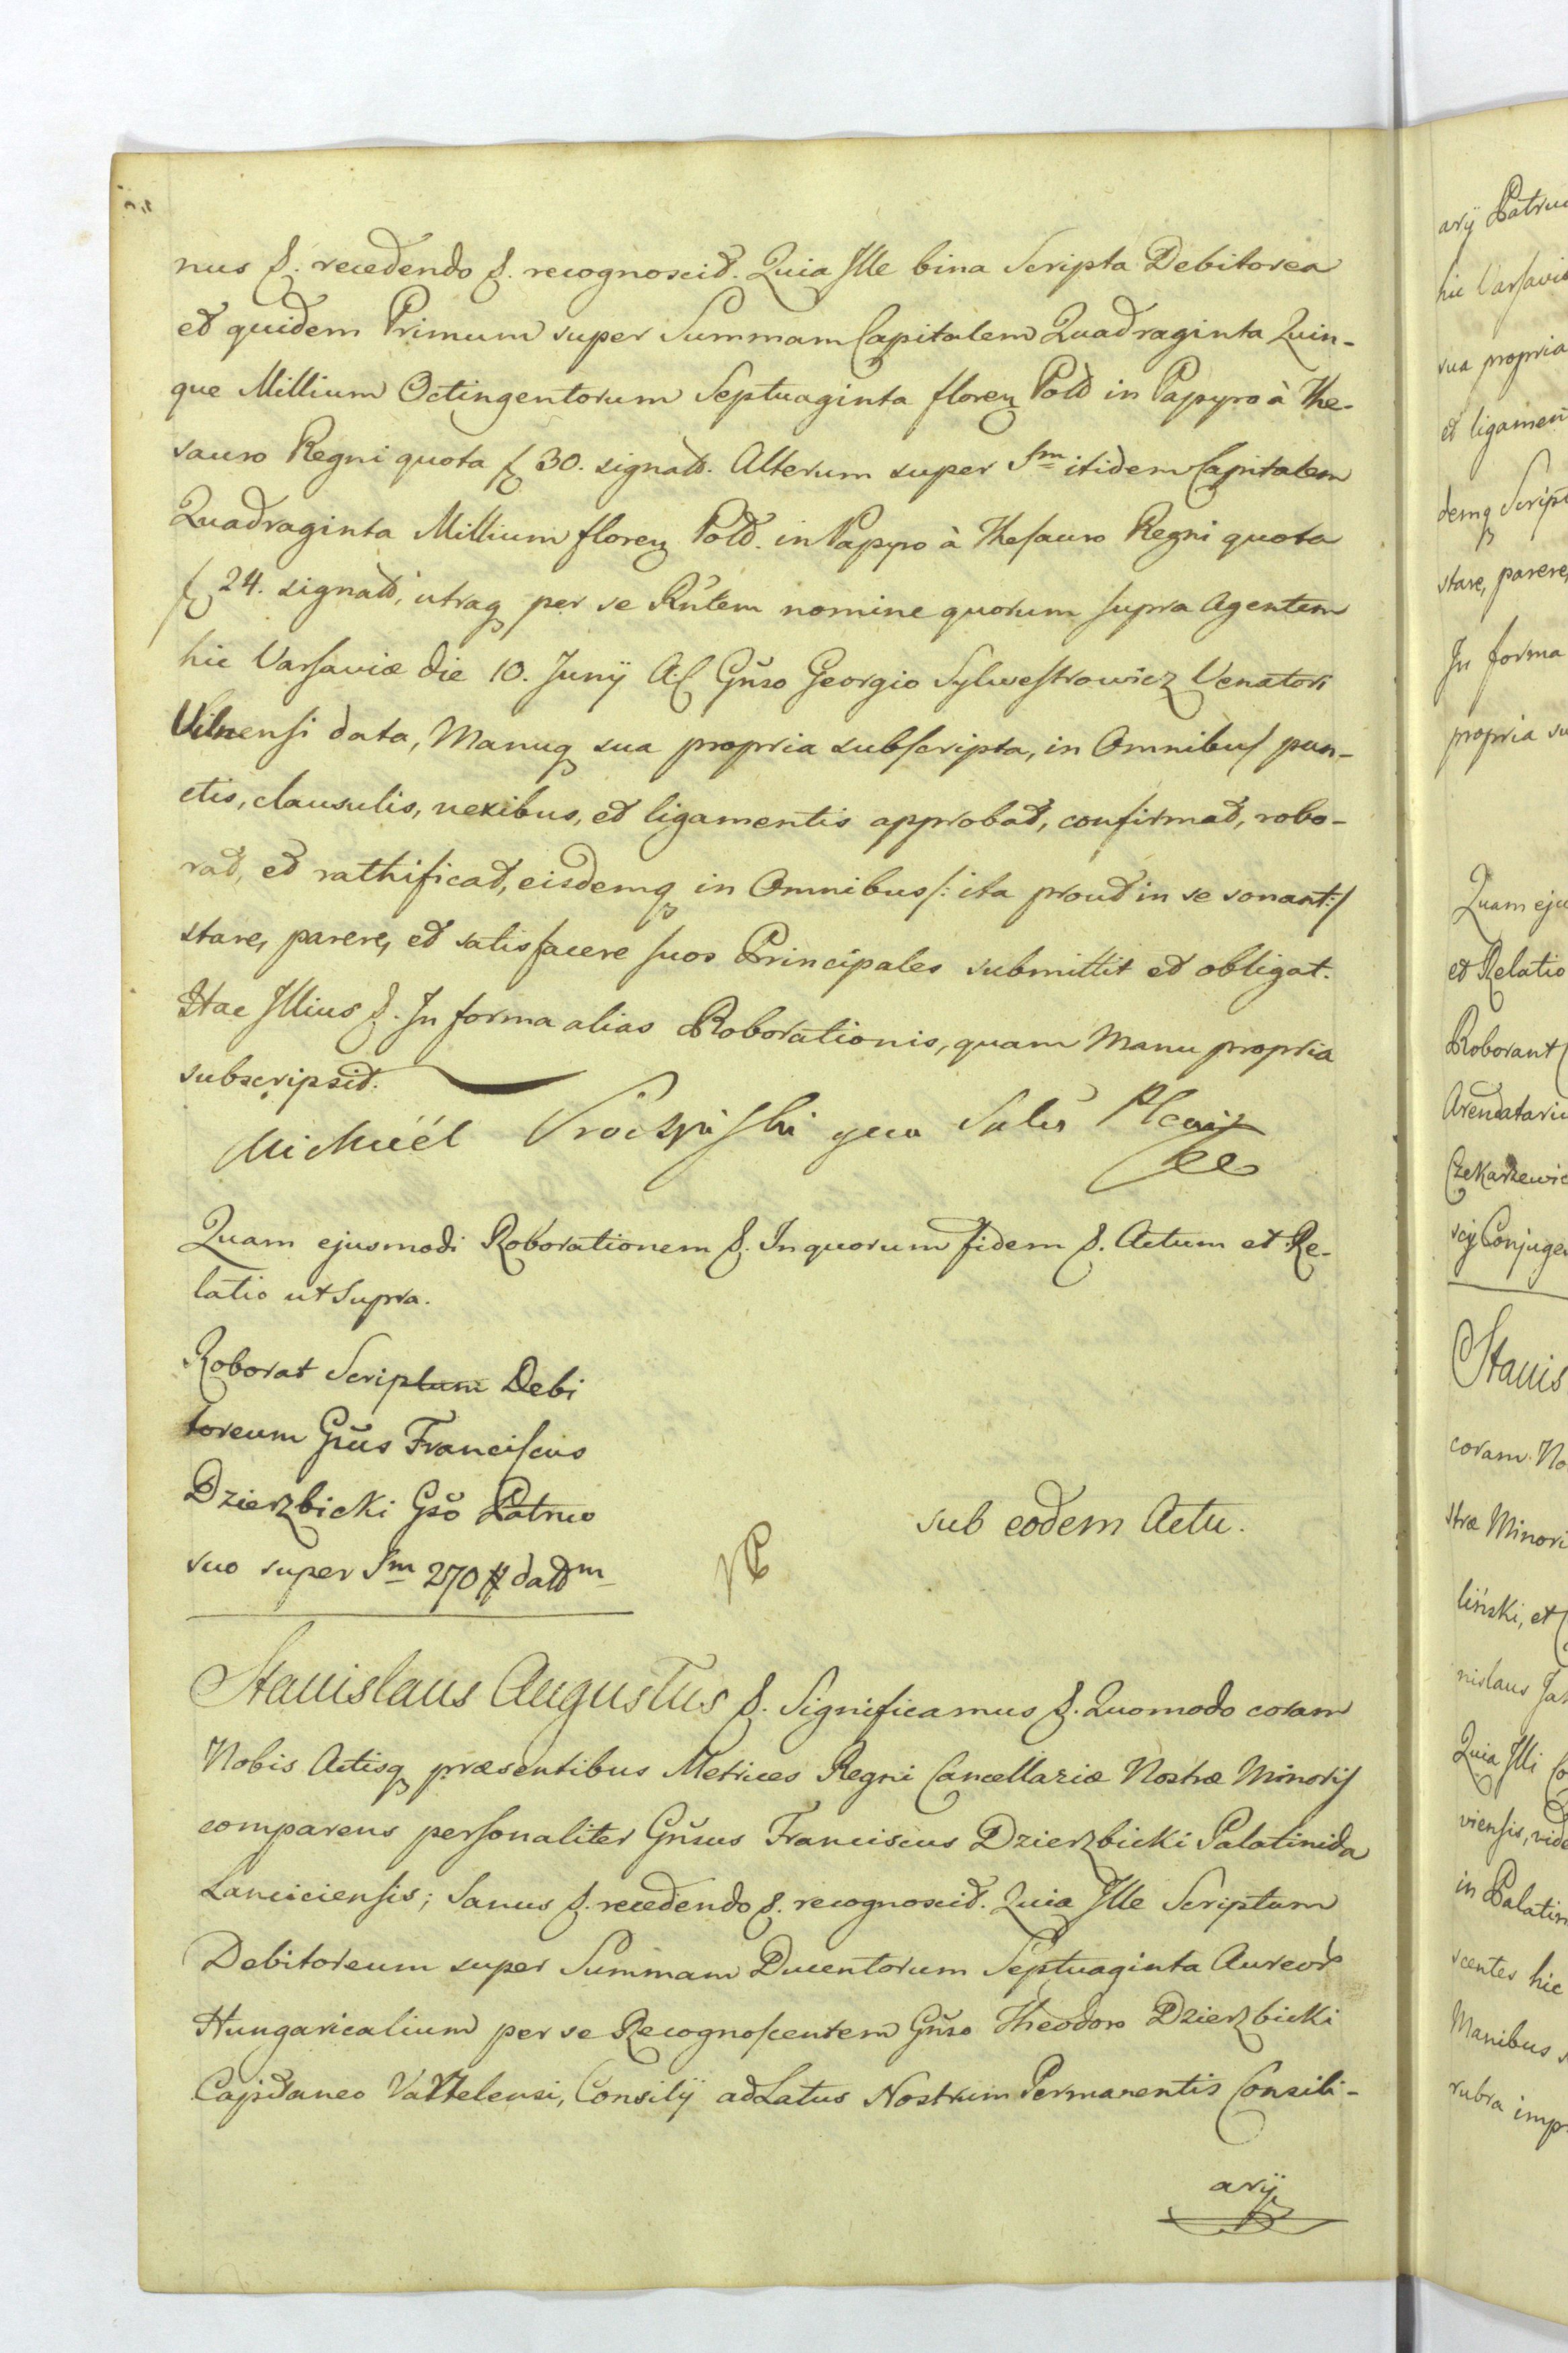 nus &. recedendo &. recognoscit. Quia Ille bina Scripta Debitorea
et quidem Primum super Summam Capitalem Quadraginta Quin-
que Millium Octingentorum Septuaginta floren Pold in Papyro à The-
sauro Regni quota f 30. signatt. Alterum super Sm̅ itidem Capitalem
Quadraginta Millium floren Pold. in Papyro à Thesauro Regni quota
f 24. signatt, utraq per se Rñtem nomine quorum supra Agentem
hic Varsaviæ die 10. Junÿ A.C Gñso Georgio Sylwestrowicz Venatori
Vilnensi data, Manuq sua propria subscripta, in Omnibus pun-
ctis, clausulis, nexibus, et ligamentis approbat, confirmat, robo-
rat, et rathificat, eisdemq in Omnibus /: ita prout in se sonant :/
stare, parere, et satisfacere suos Principales submittit et obligat.
Hac Illius &. In forma alias Roborationis, quam Manu propria
subscripsit.
Michaél
Quam ejusmodi Roborationem &. In quorum fidem &. Actum et Re-
latio ut supra.
Roborat Scriptum Debi
toreum Gñus Franciscus
Dzierzbicki Gsõ Patruo
suo super Sm̅ 270 # dattm
sub eodem Actu.
Stanislaus Augustus &. Significamus &. Quomodo coram
Nobis Actisq præsentibus Metrices Regni Cancellariæ Nostræ Minoris
comparens personaliter Gñsus Franciscus Dzierzbicki Palatinida
Lanciciensis; Sanus &. recedendo &. recognoscit. Quia Ille Scriptum
Debitoreum super Summam Ducentorum Septuaginta Aureor
Hungaricalium per se Recognoscentem Gñso Theodoro Dzierzbicki
Capitaneo Vartelensi, Consilÿ ad Latus Nostrum Permanentis Consili-
arÿ
arÿ Patruo
hic Varsaviæ
sua propria
et ligamen
demq Script
stare, parere,
In forma
propria su
Quam eju
et Relatio
Roborant
Arendatariu
Czekarzewic
Conjuge
Stanis
coram No
stræ Minori
liński, et
nislaus Ja
Quia Illi Co
viensis, vid
in Palatin
scentes hic
Manibus s
rubra imp